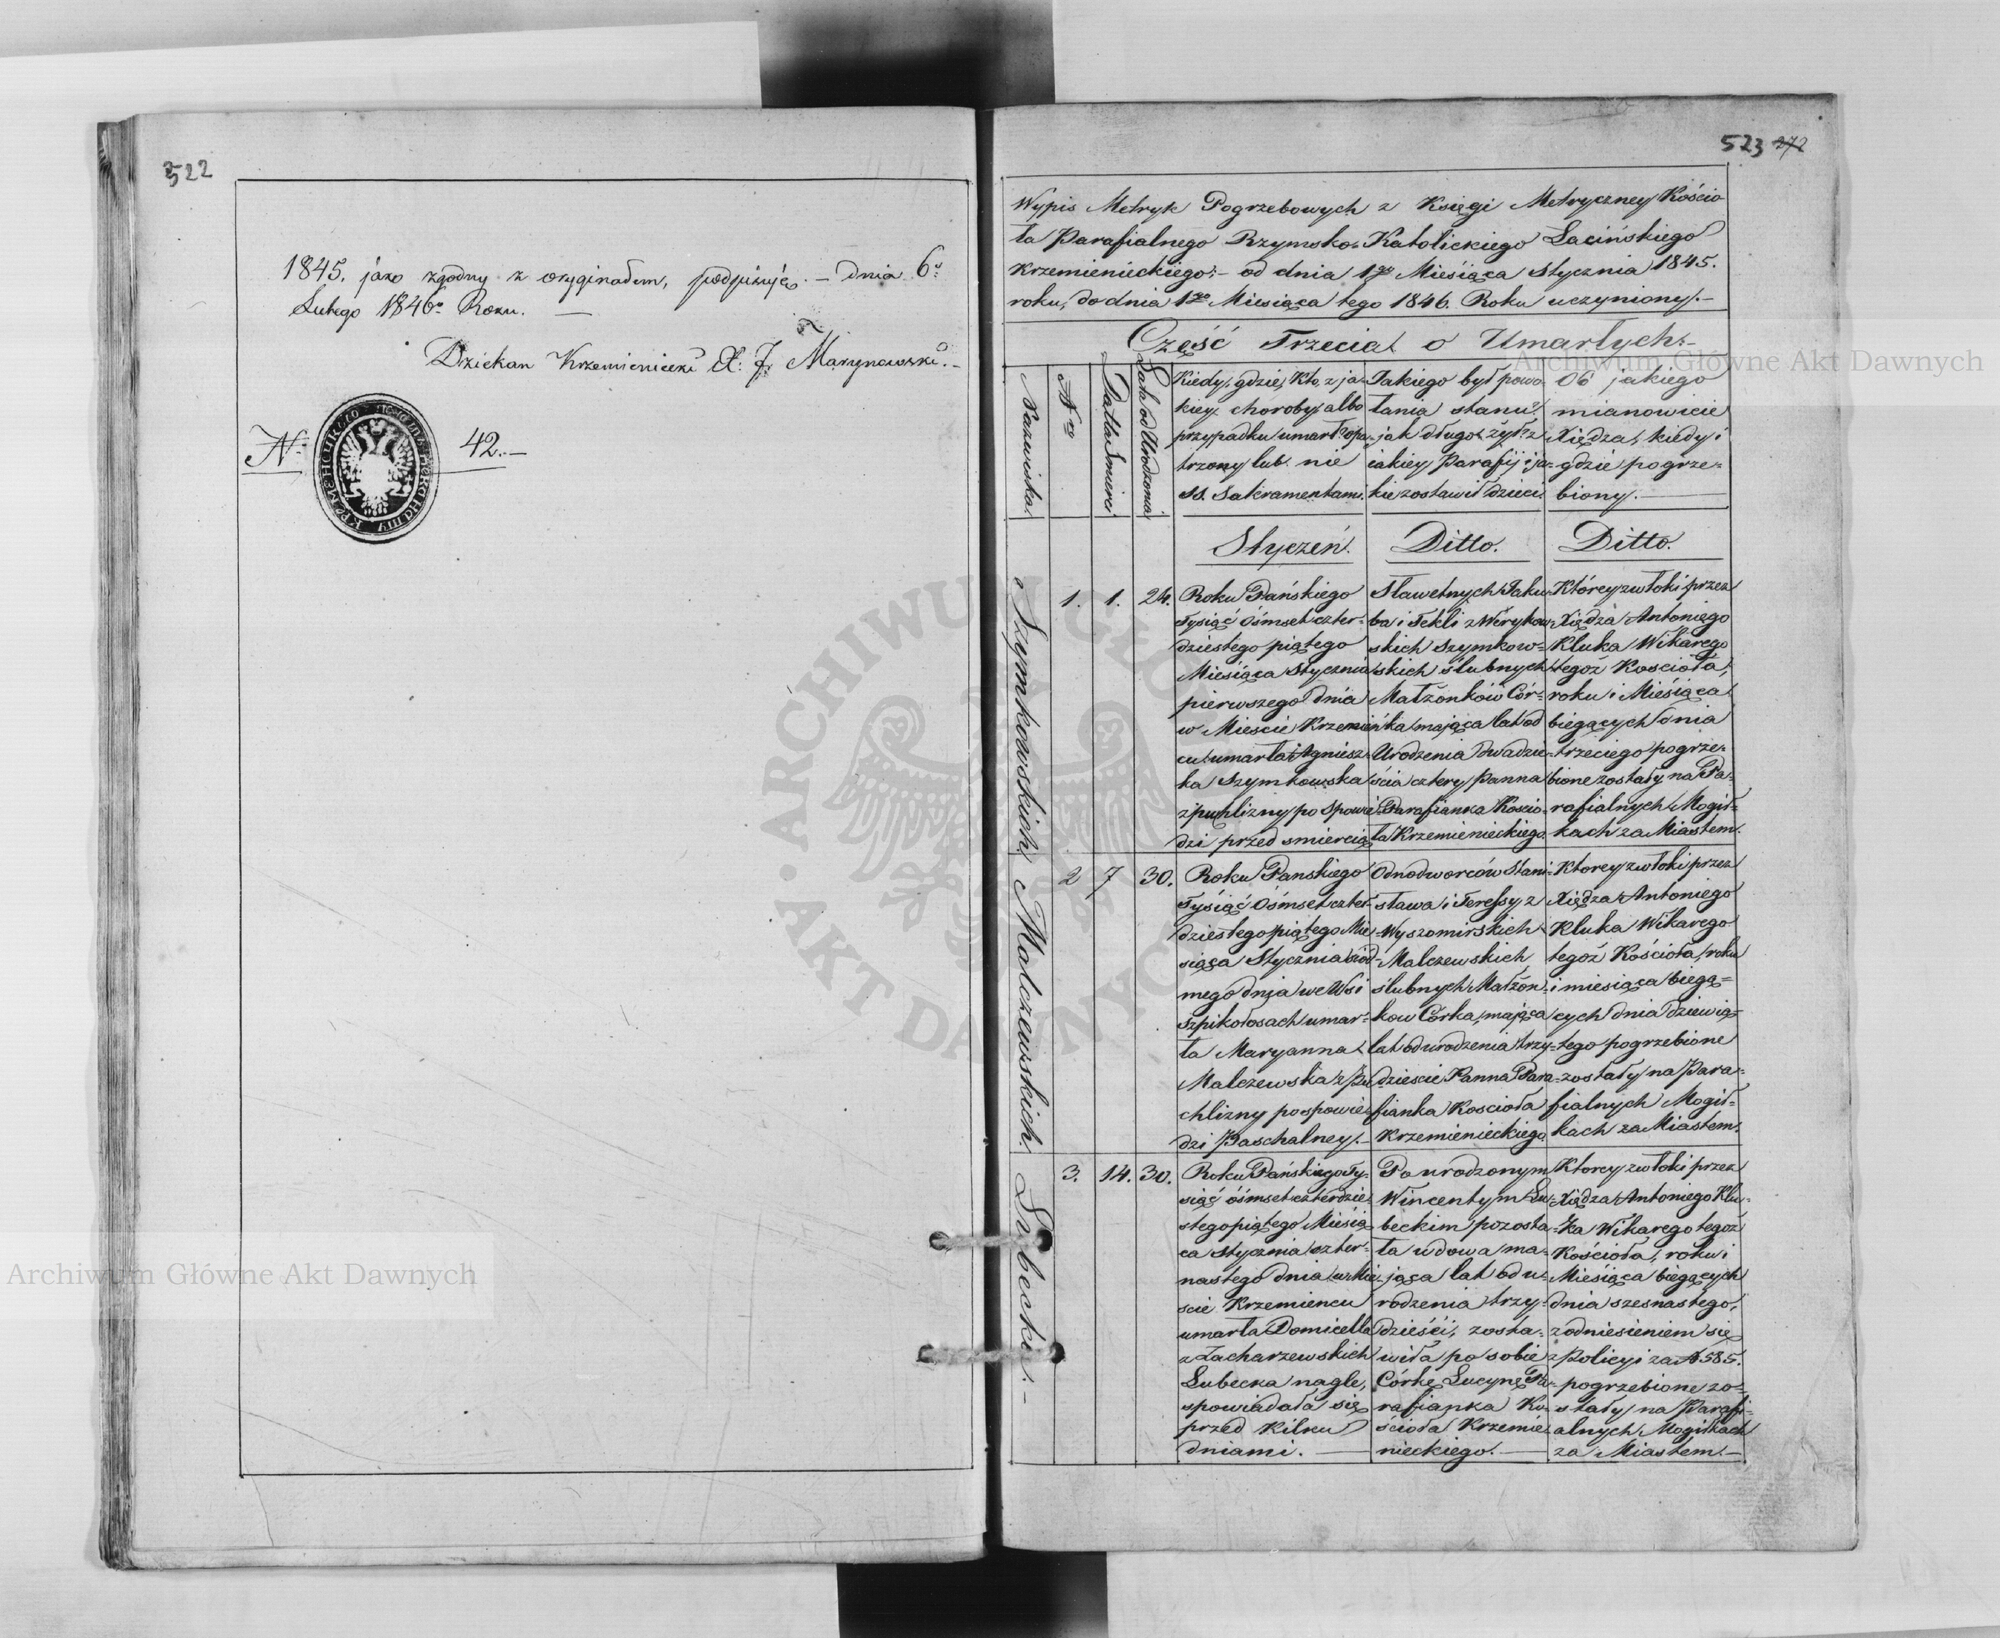 522
1845. jako zgodny z oryginałem, podpisuję. — dnia 6º
Lutego 1846º Roku. —
Dziekan Krzemieniecki X: J. Marzynowski. —
Nº 42. —
523 272
Wypis Metryk Pogrzebowych z Księgi Metryczney Kościo
ła Parafialnego Rzymsko-Katolickiego Łacińskiego
Krzemienieckiego: - od dnia 1go Miesiąca Stycznia 1845.
roku, do dnia 1go Miesiąca tego 1846. Roku uczyniony. -
Część Trzecia o Umarłych: -
Nazwiska.
Nra
Datta Smierci
Lata od Urodzenia
Kiedy, gdzie, kto, z ja-
kiey choroby, albo
przypadku umarł? opa-
trzony lub nie
SS. Sakramentami.
Jakiego był powo-
łania stanu?
jak długo żył? z
iakiey Parafij i ja-
kie zostawił dzieci
Od jakiego
mianowicie
Xiędza, kiedy i
gdzie pogrze-
biony. —
Styczeń.
Ditto.
Ditto.
Szymkowskich.
1.
1.
24.
Roku Pańskiego
Tysiąc óśmset czter-
dziestego piątego
Miesiąca Stycznia
pierwszego dnia
w Mieście Krzemień-
cu umarła Agniesz-
ka Szymkowska
z puchlizny po Spowie-
dzi przed smiercią
Sławetnych Jaku-
ba i Tekli z Werykow-
skich Szymkow-
skich ślubnych
Małżonków Cór-
ka, mająca lat od
Urodzenia dwadzie-
ścia cztery Panna
Parafianka Kościo-
ła Krzemienieckiego.
Którey zwłoki przez
Xiędza Antoniego
Kluka Wikarego
tegoż Kościoła,
roku i Miesiąca
biegących dnia
trzeciego pogrze-
bione zostały na Pa-
rafialnych Mogił-
kach za Miastem.
Malczewskich.
2
7
30.
Roku Panskiego
Tysiąc Ośmset czter-
dziestego piątego Mie-
siąca Stycznia siód-
mego dnia we Wsi
Szpikołosach umar-
ła Maryanna
Malczewska z Pu-
chlizny po spowie-
dzi Paschalney. -
Odnodworców Stani-
sława i Teressy z
Wyszomirskich
Malczewskich
ślubnych Małżon-
kow Córka, mająca
lat od urodzenia trzy-
dziescie Panna Para-
fianka Kościoła
Krzemienieckiego.
Ktorey zwłoki przez
Xiędza Antoniego
Kluka Wikarego
tegoż Kościoła, roku
i miesiąca biegą-
cych dnia dziewią-
tego pogrzebione
zostały na Para-
fialnych Mogił-
kach za Miastem.
Lubecka. -
3.
14.
30.
Roku Pańskiego Ty-
siąc óśmset czterdzie-
stego piątego Miesią-
ca Stycznia czter-
nastego dnia w Mie-
scie Krzemiencu
umarła Domicella
z Zacharzewskich
Lubecka nagle,
spowiadała się
przed kilku
dniami. —
Po urodzonym
Wincentym Lu-
beckim pozosta-
ła wdowa ma-
jąca lat od u-
rodzenia trzy-
dzieści, zosta-
wiła po sobie
Córkę Lucynę Pa-
rafianka Ko-
ścioła Krzemie-
nieckiego. —
Ktorey zwłoki przez
Xiędza Antoniego Klu-
ka Wikarego tegoż
Kościoła, roku i
Miesiąca biegących
dnia szesnastego,
z odniesieniem się
z Policyi za N 585.
pogrzebione zo-
stały na Parafi-
alnych Mogiłkach
za Miastem. —
Archiwum Główne Akt Dawnych
Archiwum Główne Akt Dawnych